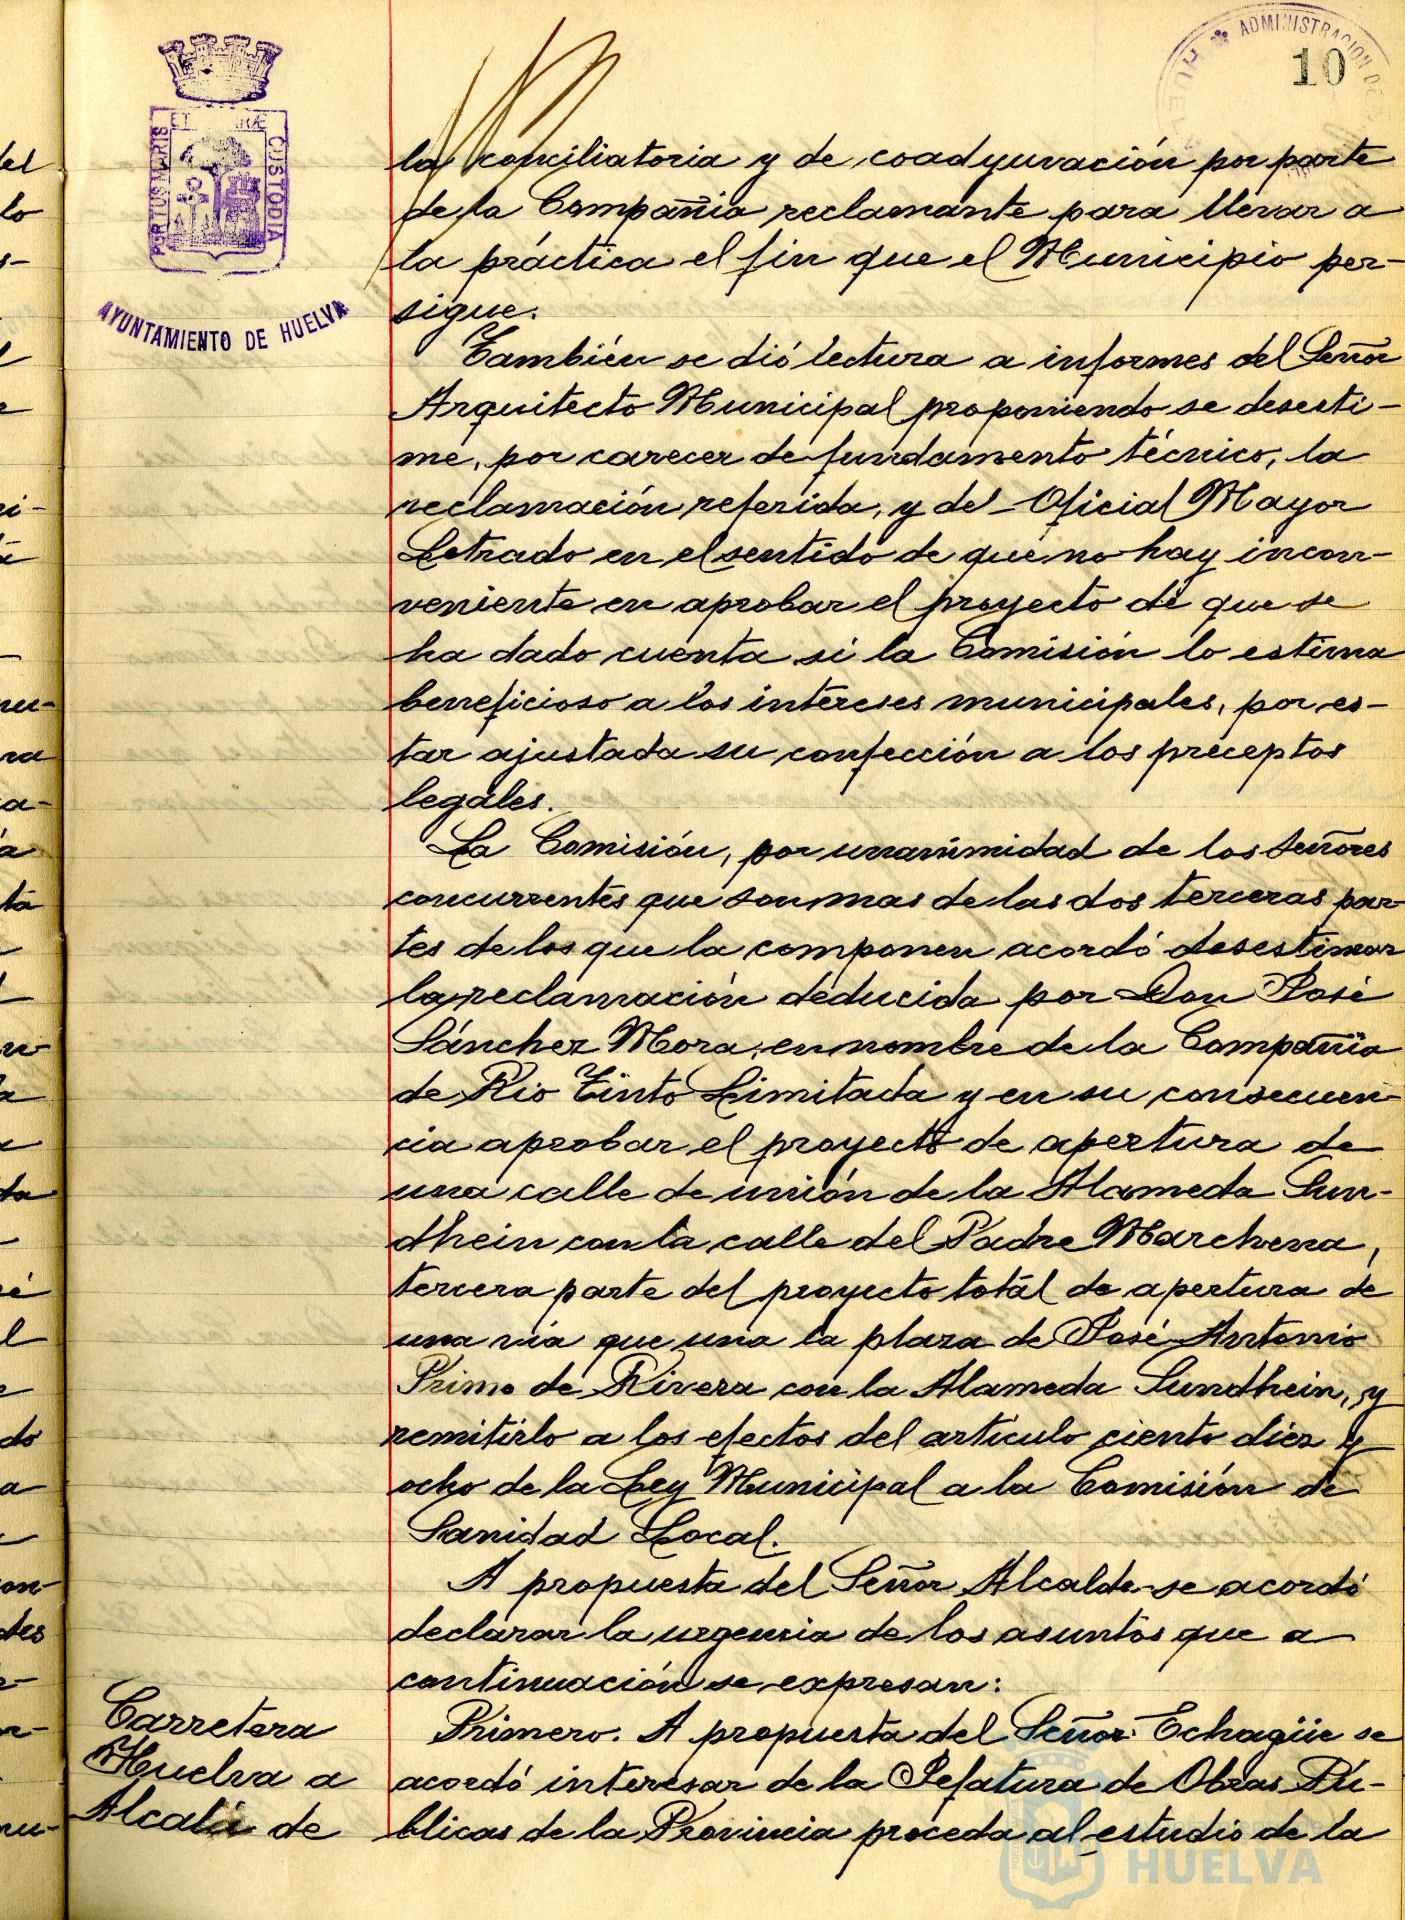 ADMINISTRACION DE
HUEL
10
PORTUS MARIS
ET
CUSTODIA
AYUNTAMIENTO DE HUELVA
la conciliatoria y de coadyuvación por parte
de la Compañia reclamante para llevar a
la práctica el fin que el Municipio per-
sigue.
También se dió lectura a informes del Señor
Arquitecto Municipal proponiendo se desesti-
me, por carecer de fundamento técnico, la
reclamación referida, y del Oficial Mayor
Letrado en el sentido de que no hay incon-
veniente en aprobar el proyecto de que se
ha dado cuenta si la Comisión lo estima
beneficioso a los intereses municipales, por es-
tar ajustada su confección a los preceptos
legales.
La Comisión, por unanimidad de los Señores
concurrentes que son mas de las dos terceras par-
tes de los que la componen acordó desestimar
la reclamación deducida por Don José
Sánchez Mora, en nombre de la Compañia
de Rio Tinto Limitada y en su consecuen-
cia aprobar el proyecto de apertura de
una calle de unión de la Alameda Sun-
dhein con la calle del Padre Marchena,
tercera parte del proyecto total de apertura de
una via que una la plaza de José Antonio
Primo de Rivera con la Alameda Sundhein, y
remitirlo a los efectos del artículo ciento diez y
ocho de la Ley Municipal a la Comisión de
Sanidad Local.
A propuesta del Señor Alcalde se acordó
declarar la urgencia de los asuntos que a
continuación se expresan:
Carretera
Huelva a
Alcalá de
Primero. A propuesta del Señor Echagüe se
acordó interesar de la Jefatura de Obras Pú-
blicas de la Provincia proceda al estudio de la
HUELVA